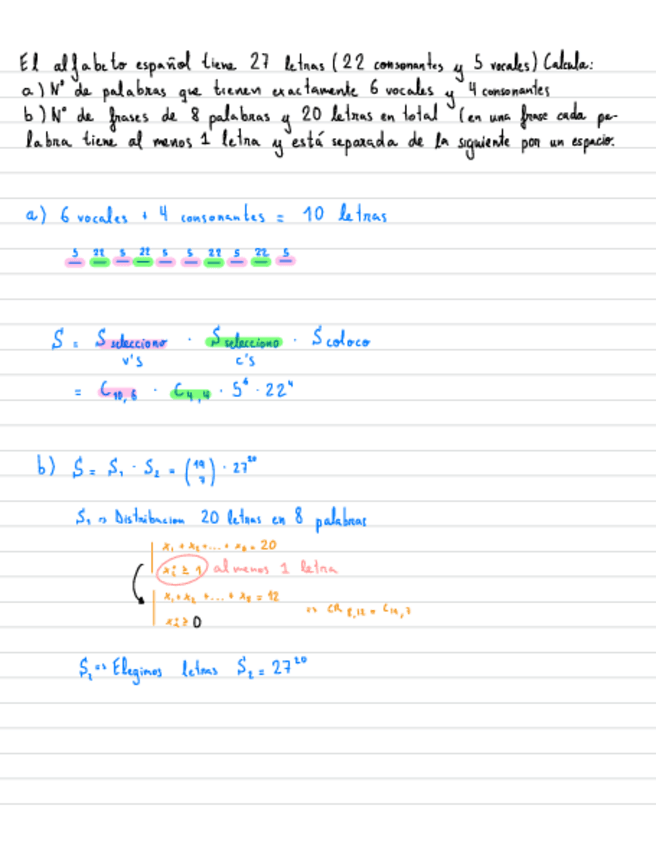 El alfabeto español tiene 27 letras (22 consonantes y 5 vocales) Calcula:
a) Nº de palabras que tienen exactamente 6 vocales y 4 consonantes
b) Nº de frases de 8 palabras y 20 letras en total (en una frase cada pa-
labra tiene al menos 1 letra y está separada de la siguiente por un espacio.
a) 6 vocales + 4 consonantes = 10 letras
5 22 5 22 5 5 22 5 22 5
S = S selecciono · S selecciono · S coloco
v's c's
= C10,6 · C4,4 · 5⁶ · 22⁴
b) S = S₁ · S₂ = (19 7) · 27²⁰
S₁ => Distribucion 20 letras en 8 palabras
x₁ + x₂ + ... + x₈ = 20
xi ≥ 1 al menos 1 letra
x₁ + x₂ + ... + x₈ = 12
xi ≥ 0 => CR8,12 = C19,7
S₂ => Elegimos letras S₂ = 27²⁰